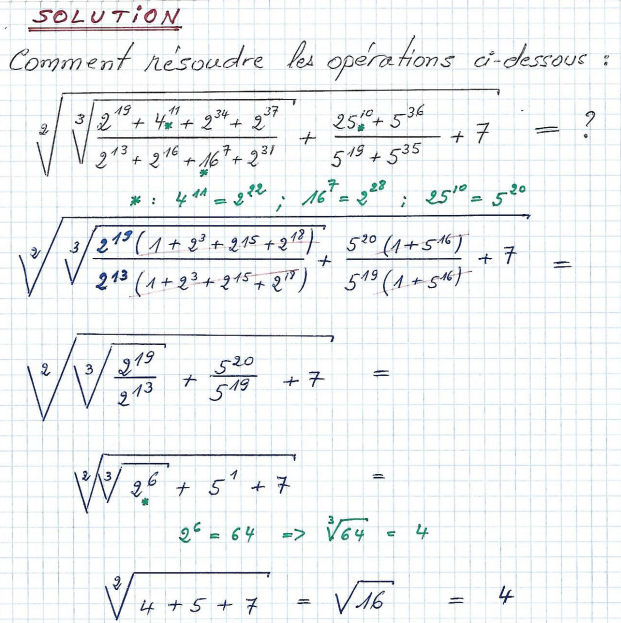 SOLUTION
Comment résoudre les opérations ci-dessous :
²√(³√((2¹⁹ + 4*¹¹ + 2³⁴ + 2³⁷)/(2¹³ + 2¹⁶ + 16*⁷ + 2³¹)) + (25*¹⁰ + 5³⁶)/(5¹⁹ + 5³⁵) + 7) = ?
* : 4¹¹ = 2²² ; 16⁷ = 2²⁸ ; 25¹⁰ = 5²⁰
²√(³√((2¹⁹(1 + 2³ + 2¹⁵ + 2¹⁸))/(2¹³(1 + 2³ + 2¹⁵ + 2¹⁸))) + (5²⁰(1 + 5¹⁶))/(5¹⁹(1 + 5¹⁶)) + 7) =
²√(³√(2¹⁹/2¹³) + 5²⁰/5¹⁹ + 7) =
²√(³√(2*⁶) + 5¹ + 7) =
2⁶ = 64 => ³√64 = 4
²√(4 + 5 + 7) = √16 = 4